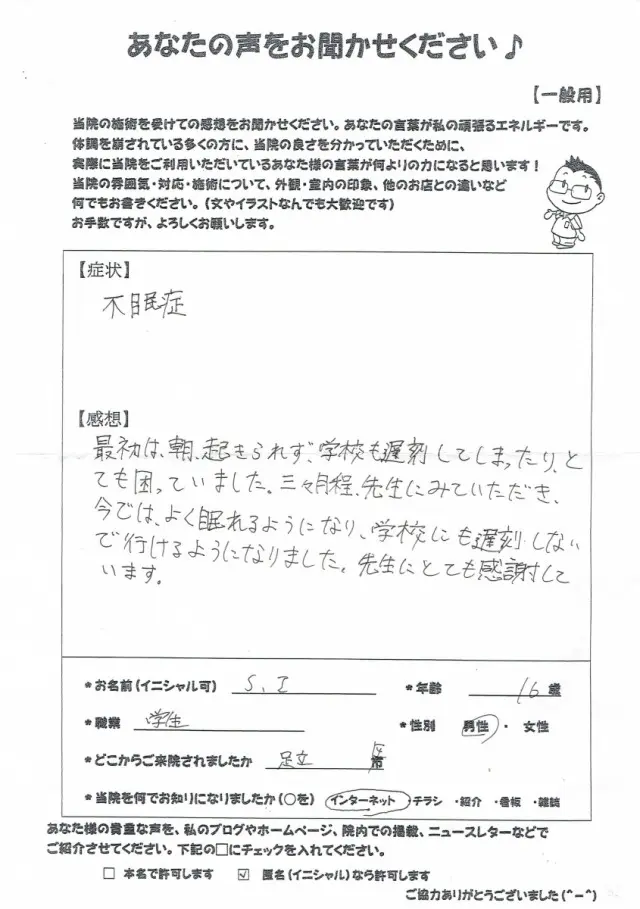 あなたの声をお聞かせください♪
【一般用】
当院の施術を受けての感想をお聞かせください。あなたの言葉が私の頑張るエネルギーです。
体調を崩されている多くの方に、当院の良さを分かっていただくために、
実際に当院をご利用いただいているあなた様の言葉が何よりの力になると思います！
当院の雰囲気・対応・施術について、外観・室内の印象、他のお店との違いなど
何でもお書きください。（文やイラストなんでも大歓迎です）
お手数ですが、よろしくお願いします。
【症状】
不眠症
【感想】
最初は、朝、起きられず、学校も遅刻してしまったり、と
ても困っていました。三ヶ月程、先生にみていただき、
今では、よく眠れるようになり、学校にも遅刻しない
で行けるようになりました。先生にとても感謝して
います。
*お名前（イニシャル可） S.I *年齢 16 歳
*職業 学生 *性別 男性 ・ 女性
*どこからご来院されましたか 足立
*当院を何でお知りになりましたか（○を） インターネット ・チラシ ・紹介 ・看板 ・雑誌
あなた様の貴重な声を、私のブログやホームページ、院内での掲載、ニュースレターなどで
ご紹介させてください。下記の□にチェックを入れてください。
□ 本名で許可します ☑ 匿名（イニシャル）なら許可します
ご協力ありがとうございました（^－^）